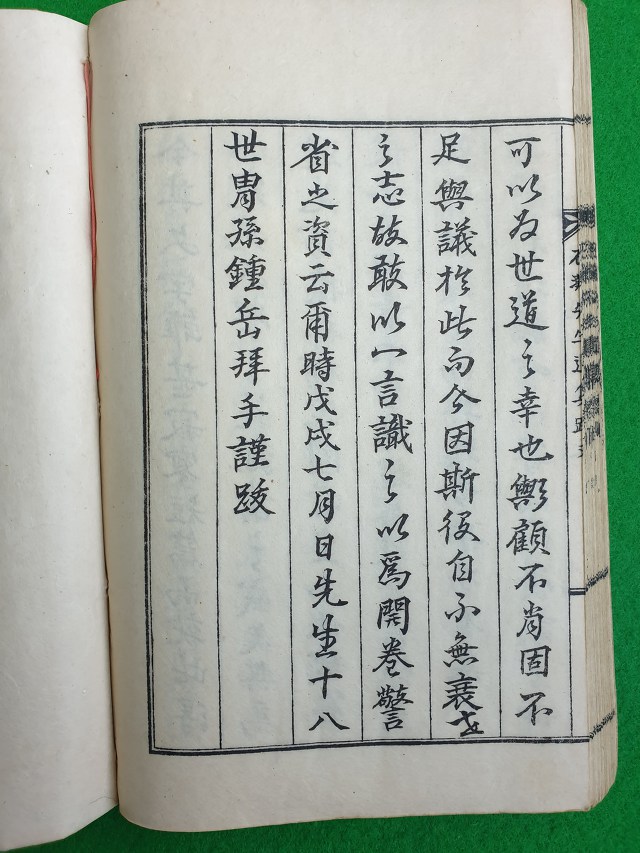 可以为世道之幸也 顧不肖固不
足與議於此而今因斯役自不無衰世
之志故敢以一言識之以爲開卷警
省之資云爾時戊戌七月日先生十八
世冑孫鍾岳拜手謹跋